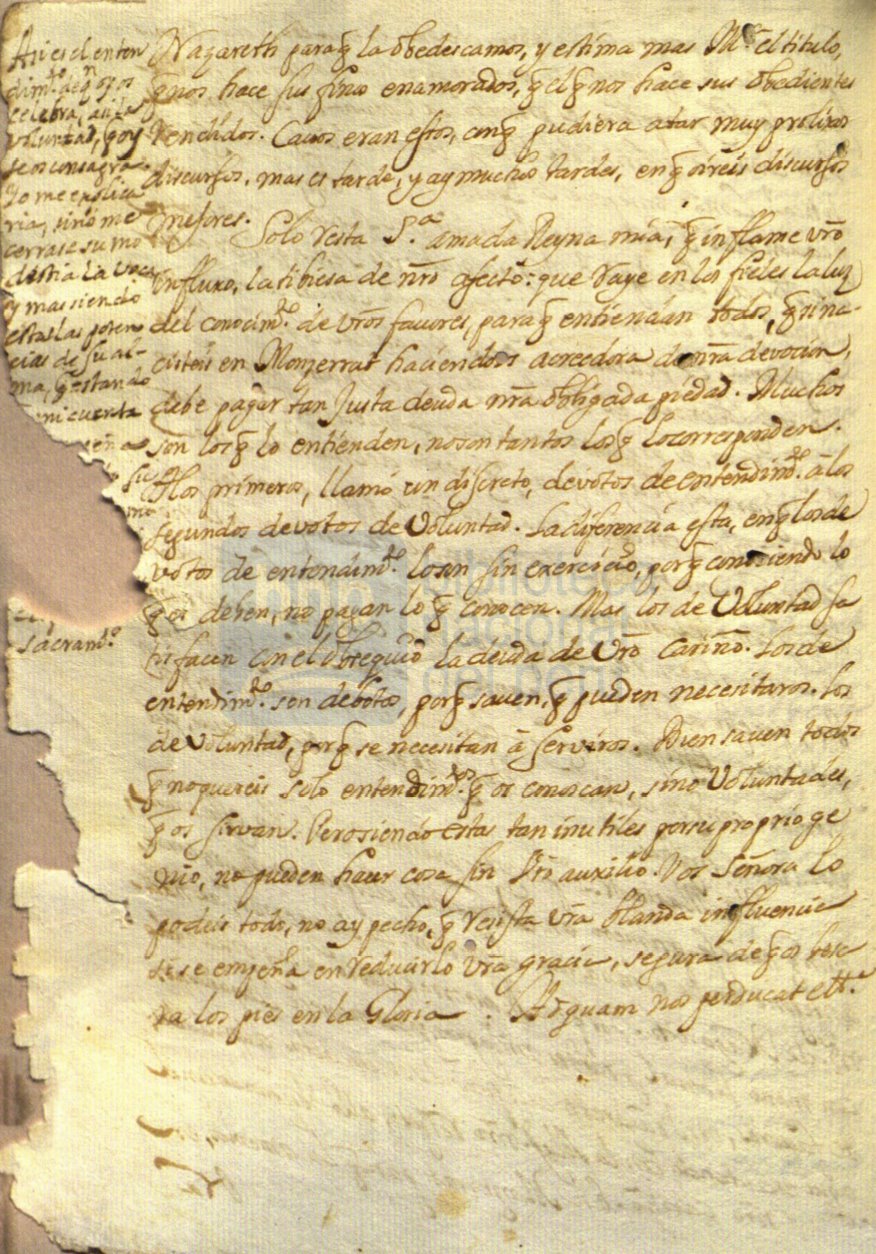 Asi es el enten
dim.to de qn os
celebra, an la
voluntad, q oy
se os consagra.
Yo me explica
ria, sino me
cerrase su mo
destia la voca
y mas siendo
estas las poten
cias de su al-
ma, q estando
en cuenta
eña
su
mo
sacram.to
Nazareth para q la obedescamos, y estima mas M.e el titulo,
q nos hace sus finos enamorados, q el q nos hace sus obedientes
rendidos. Cavos eran estos, en q pudiera atar muy prolixos
discursos, mas es tarde, y ay muchas tardes, en q oireis discursos
mejores. Solo resta S.a amada Reyna mia, q inflame vro
influxo, la tibiesa de nro afecto: que raye en los fieles la luz
del conocim.to de vros favores, para q entiendan todos, q si na-
cisteis en Monserrat haciendoos acreedora de nra devocion,
debe pagar tan justa deuda nra obligada piedad. Muchos
son los q lo entienden, no son tantos los q lo corresponden.
A los primeros, llamó un discreto, devotos de entendim.to á los
segundos devotos de Voluntad. La diferencia esta, en q los de
votos de entendim.to lo son sin exercicio, porq conociendo lo
q os deben, no pagan lo q conocen. Mas los de Voluntad sa
tisfacen con el obsequio la deuda de vro cariño. Los de
entendim.to son debotos, porq saven, q pueden necesitaros. los
de Voluntad, porq se necesitan á serviros. Bien saven todos
q no quereis solo entendim.tos q os conoscan, sino Voluntades,
q os sirvan. Pero siendo estas tan inutiles por su proprio ge
nio, no pueden hacer cosa sin vro auxilio. Vos Señora lo
podeis todo, no ay pecho, q resista vra blanda influencia
si se empeña en reducirlo vra gracia, segura de q os bese
ra los pies en la Gloria. Ad quam nos perducat ett.a
biblioteca
nacional
del perú